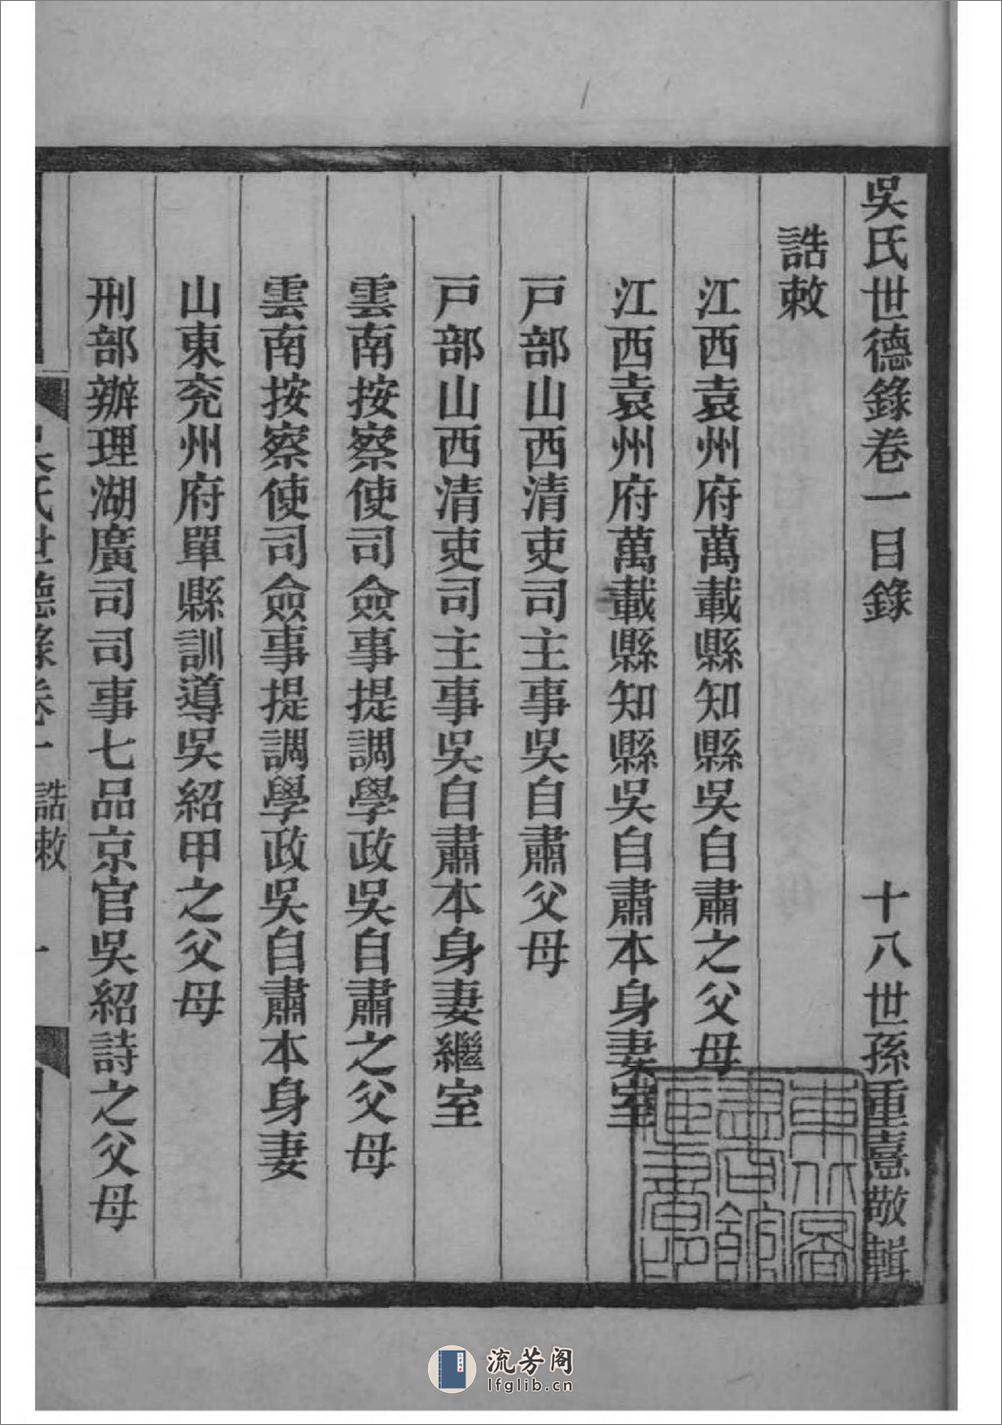 吳氏世德錄卷一目錄　十八世孫重憙敬輯
誥敕
江西袁州府萬載縣知縣吳自肅之父母
江西袁州府萬載縣知縣吳自肅本身妻室
戸部山西清吏司主事吳自肅父母
戸部山西清吏司主事吳自肅本身妻繼室
雲南按察使司僉事提調學政吳自肅之父母
雲南按察使司僉事提調學政吳自肅本身妻
山東兖州府單縣訓導吳紹甲之父母
刑部辦理湖廣司司事七品京官吳紹詩之父母
氏世德錄卷一　誥敕　一
流芳阁
lfglib.cn